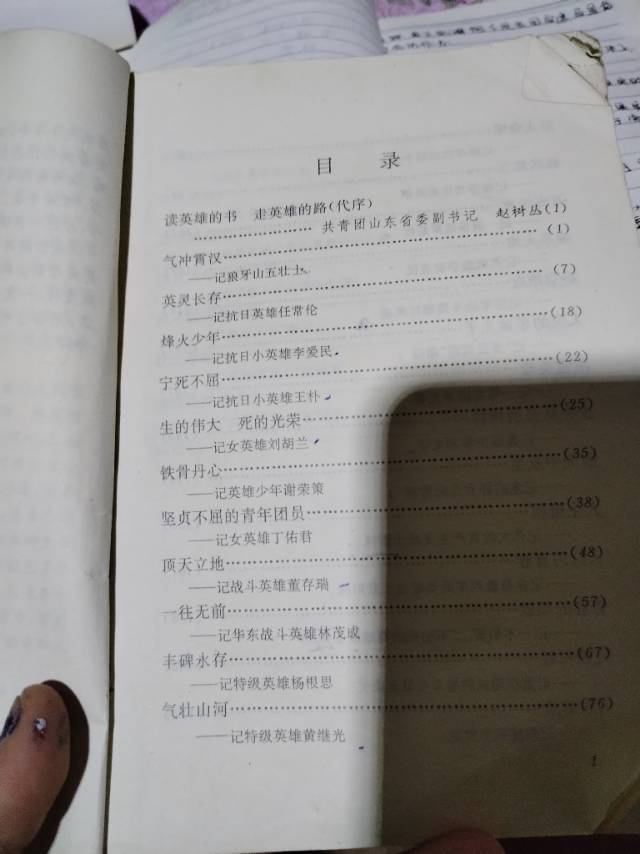 目 录
读英雄的书 走英雄的路(代序)
…………………… 共青团山东省委副书记 赵树丛(1)
气冲霄汉……………………………………………(1)
——记狼牙山五壮士
英灵长存……………………………………………(7)
——记抗日英雄任常伦
烽火少年……………………………………………(18)
——记抗日小英雄李爱民
宁死不屈……………………………………………(22)
——记抗日小英雄王朴
生的伟大 死的光荣………………………………(25)
——记女英雄刘胡兰
铁骨丹心……………………………………………(35)
——记英雄少年谢荣策
坚贞不屈的青年团员………………………………(38)
——记女英雄丁佑君
顶天立地……………………………………………(48)
——记战斗英雄董存瑞
一往无前……………………………………………(57)
——记华东战斗英雄林茂成
丰碑永存……………………………………………(67)
——记特级英雄杨根思
气壮山河……………………………………………(76)
——记特级英雄黄继光
1